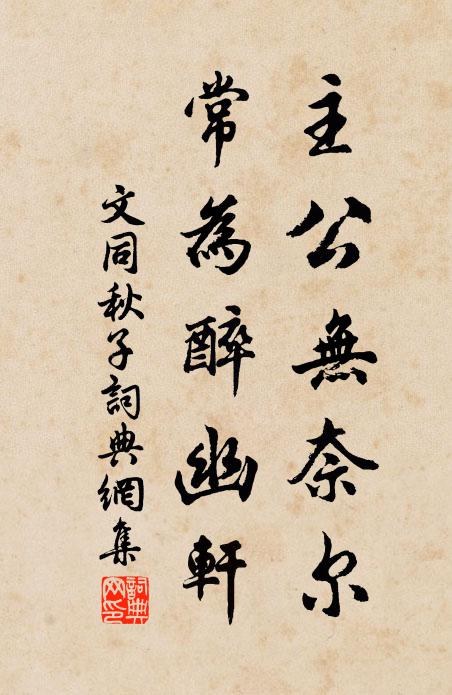 主公無奈尔
常為醉幽軒
文同秋子詞典網集
詞典網印